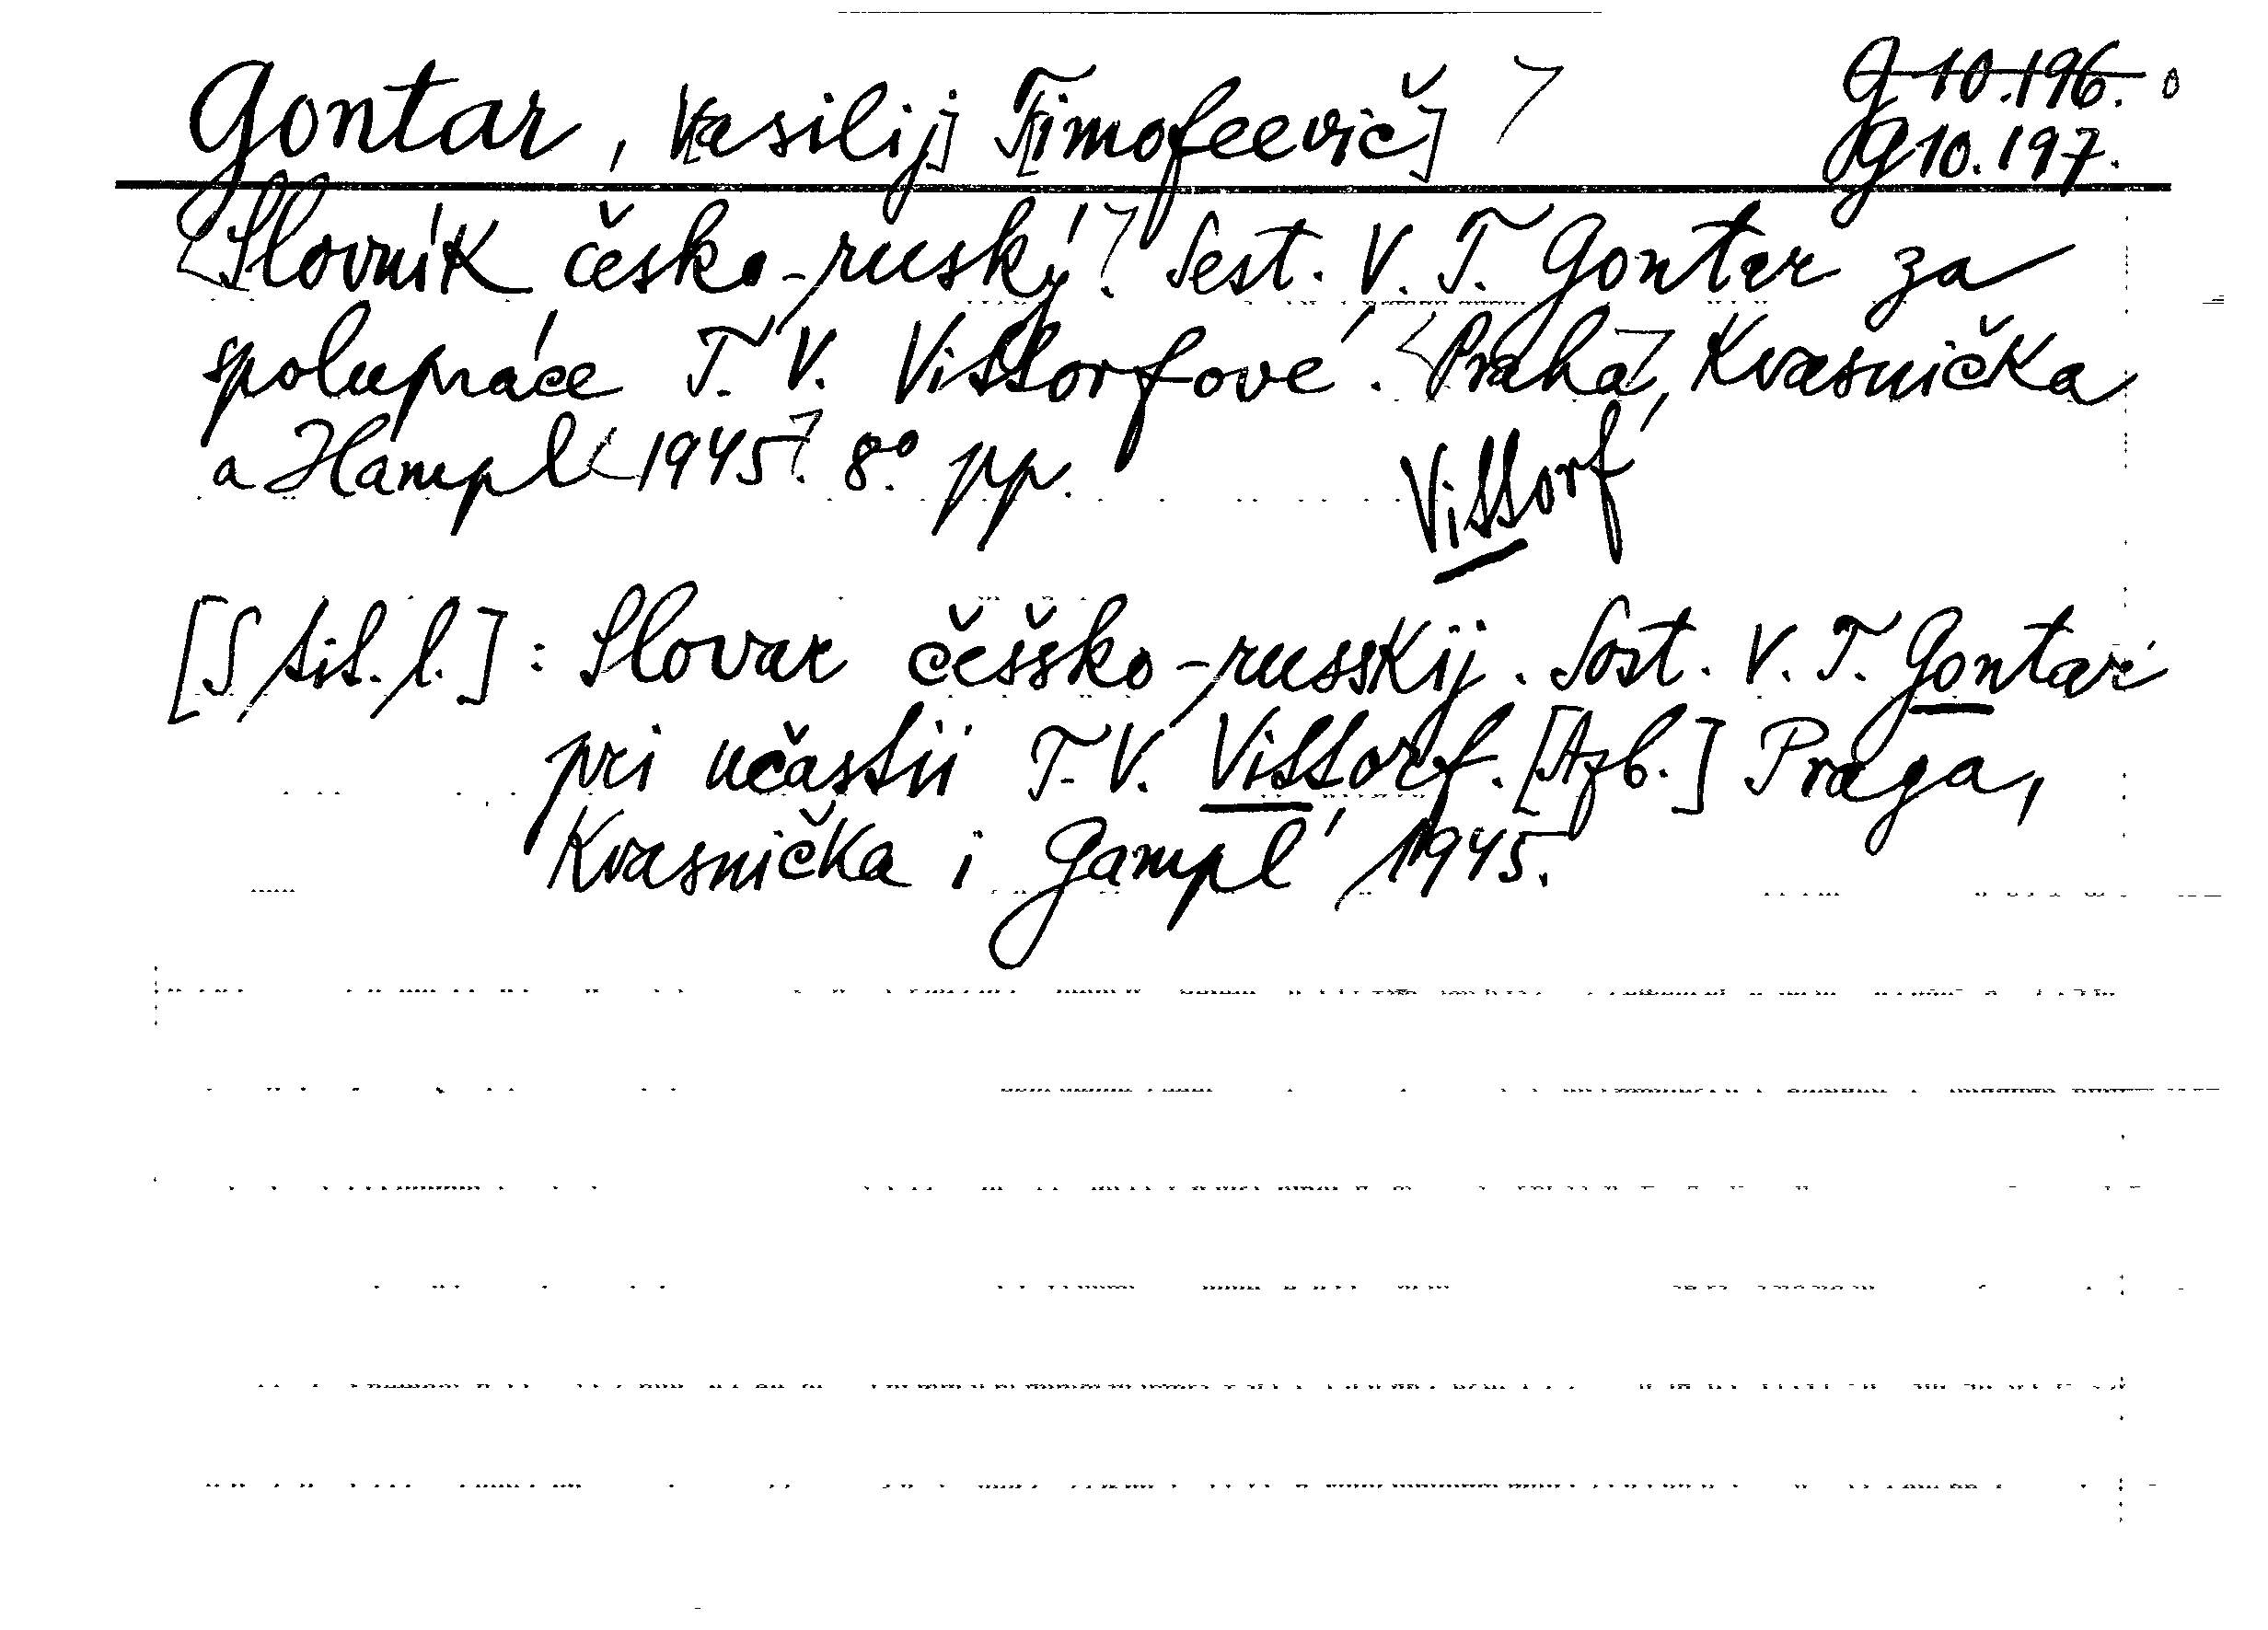 Gontar, V[asilij] T[imofeevič]
G 10.196.
G 10.197.
<Slovník česko-ruský.> Sest. V. T. Gontar za
spolupráce T. V. Vittorfové. <Praha>, Kvasnička
a Hampl <1945>. 8° pp.
Vittorf
[S tit. l.]: Slovar češsko-russkij. Sost. V. T. Gontar
pri učastii T. V. Vittorf. [Azb.] Praga,
Kvasnička i Gampl' 1945.